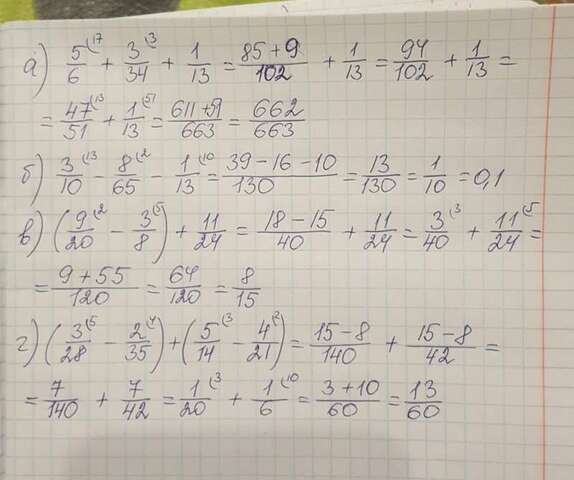 а) 5/6 (17 + 3/34 (3 + 1/13 = (85 + 9)/102 + 1/13 = 94/102 + 1/13 =
= 47/51 (13 + 1/13 (51 = (611 + 51)/663 = 662/663
б) 3/10 (13 - 8/65 (2 - 1/13 (10 = (39 - 16 - 10)/130 = 13/130 = 1/10 = 0,1
в) (9/20 (2 - 3/8 (5) + 11/24 = (18 - 15)/40 + 11/24 = 3/40 (3 + 11/24 (5 =
= (9 + 55)/120 = 64/120 = 8/15
г) (3/28 (5 - 2/35 (4) + (5/14 (3 - 4/21 (2) = (15 - 8)/140 + (15 - 8)/42 =
= 7/140 + 7/42 = 1/20 (3 + 1/6 (10 = (3 + 10)/60 = 13/60